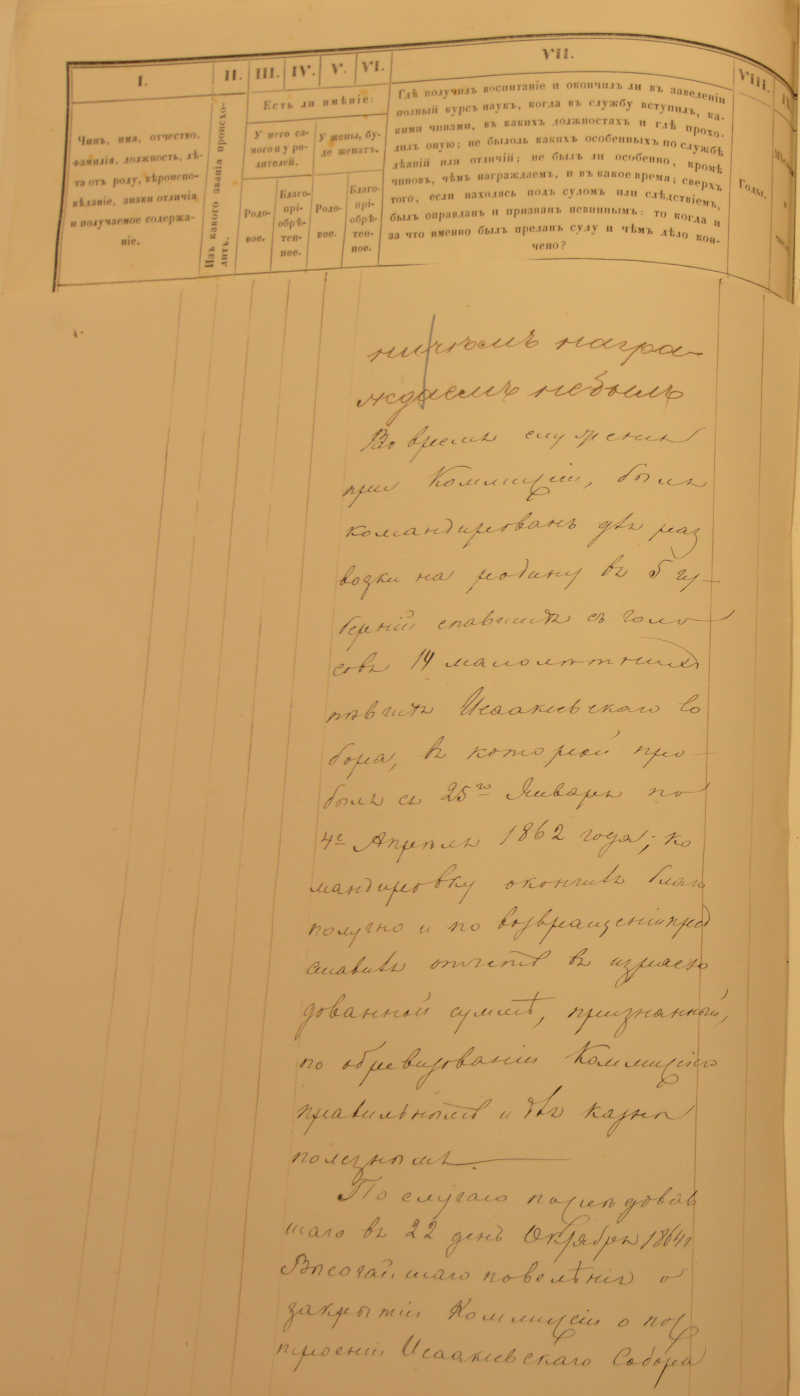 I.
II.
III.
IV.
V.
VI.
VII.
VIII.
Чинъ, имя, отчество,
фамилія, должность, лѣ-
та отъ роду, вѣроиспо-
вѣданіе, знаки отличія
и получаемое содержа-
ніе.
Изъ какого званія происхо-
дитъ.
Есть ли имѣніе:
У него са-
мого и у ро-
дителей.
У жены, бу-
де женатъ.
Родо-
вое.
Благо-
прі-
обрѣ-
тен-
ное.
Родо-
вое.
Благо-
прі-
обрѣ-
тен-
ное.
Гдѣ получилъ воспитаніе и окончилъ ли въ заведеніи
полный курсъ наукъ, когда въ службу вступилъ, ка-
кими чинами, въ какихъ должностяхъ и гдѣ прохо-
дилъ оную; не было ль какихъ особенныхъ по службѣ
дѣяній или отличій; не былъ ли особенно, кромѣ
чиновъ, чѣмъ награждаемъ, и въ какое время; сверхъ
того, если находясь подъ судомъ или слѣдствіемъ,
былъ оправданъ и признанъ невиннымъ: то когда и
за что именно былъ преданъ суду и чѣмъ дѣло кон-
чено?
Годы.
награ-
ждаемъ небылъ
Во время служенія
при Коммиссіи, былъ
командированъ для раз
возки на родину въ 5 гу-
берній
14 малолѣтнихъ
пѣвчихъ Исаакіевскаго Со
бора, въ которой про
былъ съ 25го Января по
4е Апрѣля 1862 года; ко
мандировку окончилъ благо
получно и по возвращеніи пред
ставилъ отчетъ въ израсхо
дованной суммѣ, признанной,
по обревизованіи Коммиссіею
правильнымъ и для казны
полезнымъ.
По случаю послѣдовав
шаго въ 22 день Октября 1864
Высочайшаго повелѣнія о
закрытіи Коммиссіи о пос
троеніи Исаакіевскаго Собора